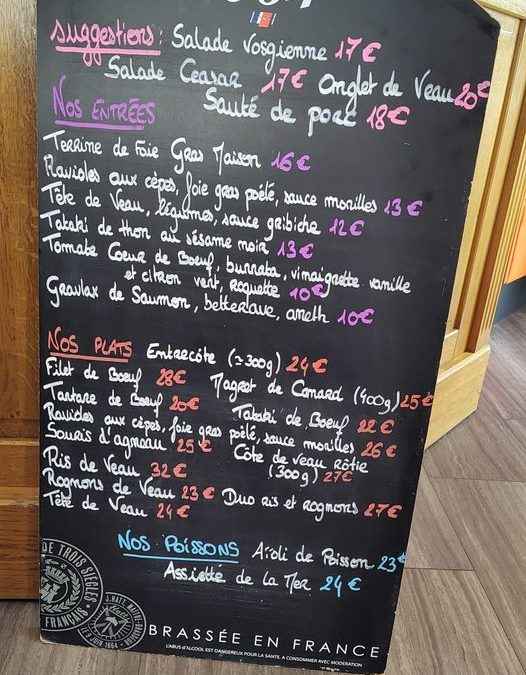 Suggestions: Salade Vosgienne 17€
Salade Ceasar 17€ Onglet de Veau 20€
Sauté de porc 18€
NOS ENTRÉES
Terrine de Foie Gras Maison 16€
Ravioles aux cèpes, foie gras poêlé, sauce morilles 13€
Tête de Veau, légumes, sauce gribiche 12€
Tataki de thon au sésame noir 13€
Tomate Coeur de Boeuf, burrata, vinaigrette vanille
et citron vert, roquette 10€
Gravlax de Saumon, betterave, aneth 10€
NOS PLATS Entrecôte (≥300g) 24€
Filet de Boeuf 28€ Magret de Canard (400g) 25€
Tartare de Boeuf 20€ Tataki de Boeuf 22€
Ravioles aux cèpes, foie gras poêlé, sauce morilles 26€
Souris d'agneau 25€ Côte de veau rôtie
(300g) 27€
Ris de Veau 32€
Rognons de Veau 23€ Duo ris et rognons 27€
Tête de Veau 24€
NOS POISSONS Aïoli de Poisson 23€
Assiette de la Mer 24€
DE TROIS SIÈCLES
FRANÇAIS
BRASSÉE EN FRANCE
L'ABUS D'ALCOOL EST DANGEREUX POUR LA SANTÉ, A CONSOMMER AVEC MODERATION